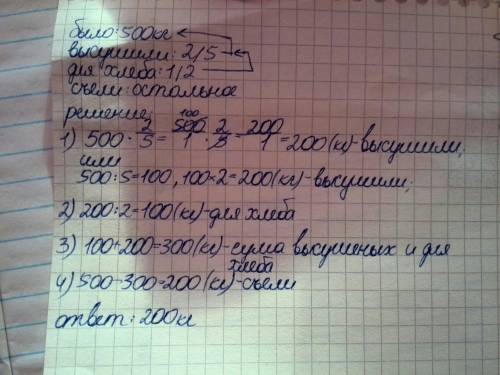 было: 500кг
высушили: 2/5
для хлеба: 1/2
съели: остальное
решение:
1) 500 · 2/5 = 500/1 · 2/5 = 200/1 = 200 (кг) - высушили;
100
или
500:5=100, 100×2=200(кг)-высушили;
2) 200:2=100(кг)-для хлеба
3) 100+200=300(кг)-сума высушеных и для
хлеба
4) 500-300=200(кг)-съели
ответ: 200кг